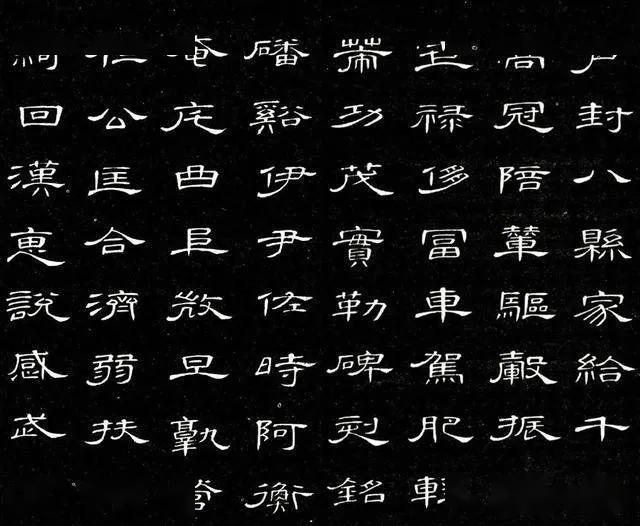 封八縣家給千
冠陪輦驅轂振
禄侈冨車駕肥輕
功茂實勒碑刻銘
磻谿伊尹佐時阿衡
奄宅曲阜微旦孰營
公匡合濟弱扶
綺回漢惠說感武